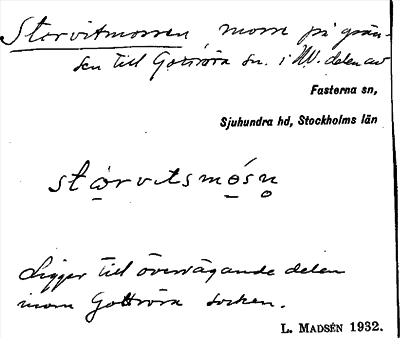 Storvitmossen moss på grän-
sen till Gottröra sn. i NV. delen av
Fasterna sn,
Sjuhundra hd, Stockholms län
Ligger till övervägande delen
inom Gottröra socken.
L. MADSÉN 1932.